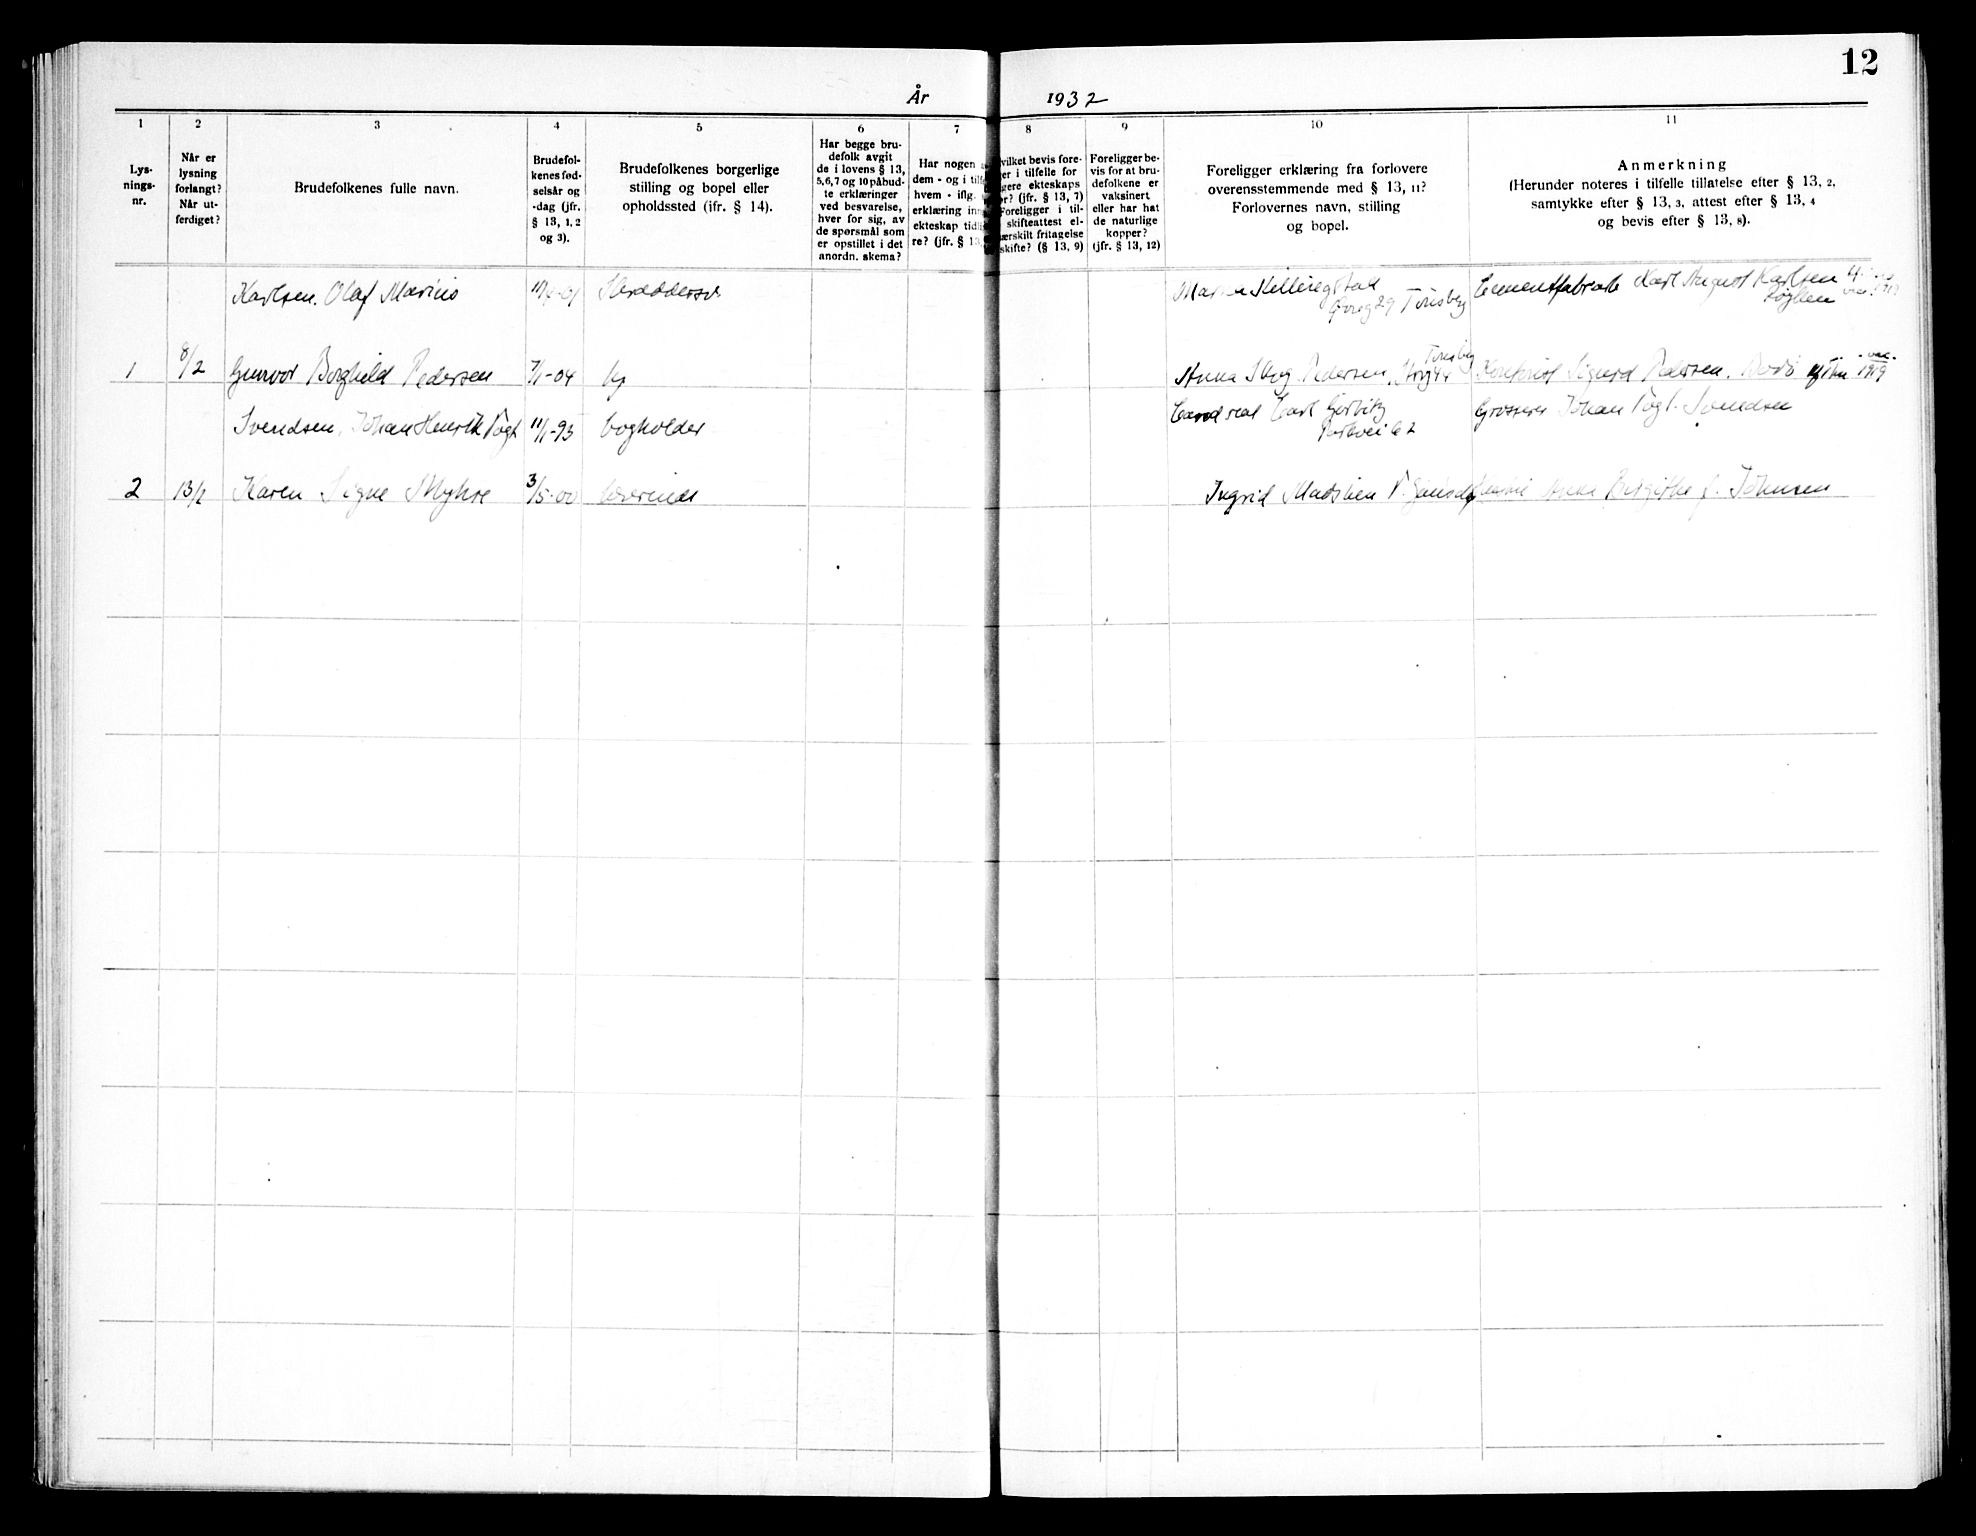 12
År 1932
1 2 3 4 5 6 7 8 9 10 11
Lys-
nings-
nr.
Når er
lysning
forlangt?
Når ut-
ferdiget?
Brudefolkenes fulle navn.
Brudefol-
kenes fød-
selsår og
-dag (jfr.
§ 13, 1, 2
og 3).
Brudefolkenes borgerlige
stilling og bopel eller
opholdssted (ifr. § 14).
Har begge bru-
defolk avgit
de i lovens § 13,
5,6,7 og 10 påbud-
te erklæringer
ved besvarelse,
hver for sig, av
de spørsmål som
er opstillet i det
anordn. skema?
Har nogen
dem - og i tilf
hvem - iflg.
erklæring in
ekteskap tidl
re? (jfr. § 13,
vilket bevis fore-
er i tilfelle for
gere ekteskaps
or? (jfr. § 13, 7)
Foreligger i til-
skifteattest el-
ærskilt fritagelse
skifte? (§ 13, 9)
Foreligger be-
vis for at bru-
defolkene er
vaksinert
eller har hat
de naturlige
kopper?
(jfr. § 13, 12)
Foreligger erklæring fra forlovere
overensstemmende med § 13, 11?
Forlovernes navn, stilling
og bopel.
Anmerkning
(Herunder noteres i tilfelle tillatelse efter § 13, 2,
samtykke efter § 13, 3, attest efter § 13, 4
og bevis efter § 13, 8).
Karlsen. Olaf Marius
29 Tønsberg
Karl August Karlsen
1 8/2 Gunvor Borghild Pedersen 7/1-04
Anna Pedersen,
Sigurd Pedersen. Bodø 1919
Svendsen, Johan Henrik Vogt 11/1-93 bogholder
Cand real Carl
Parkvei 62
Grosserer Johan Vogt-Svendsen
2 13/2 Karen Signe Myhre 3/5-00 lærerinde
Ingrid
Anna Birgitte f. Johnsen